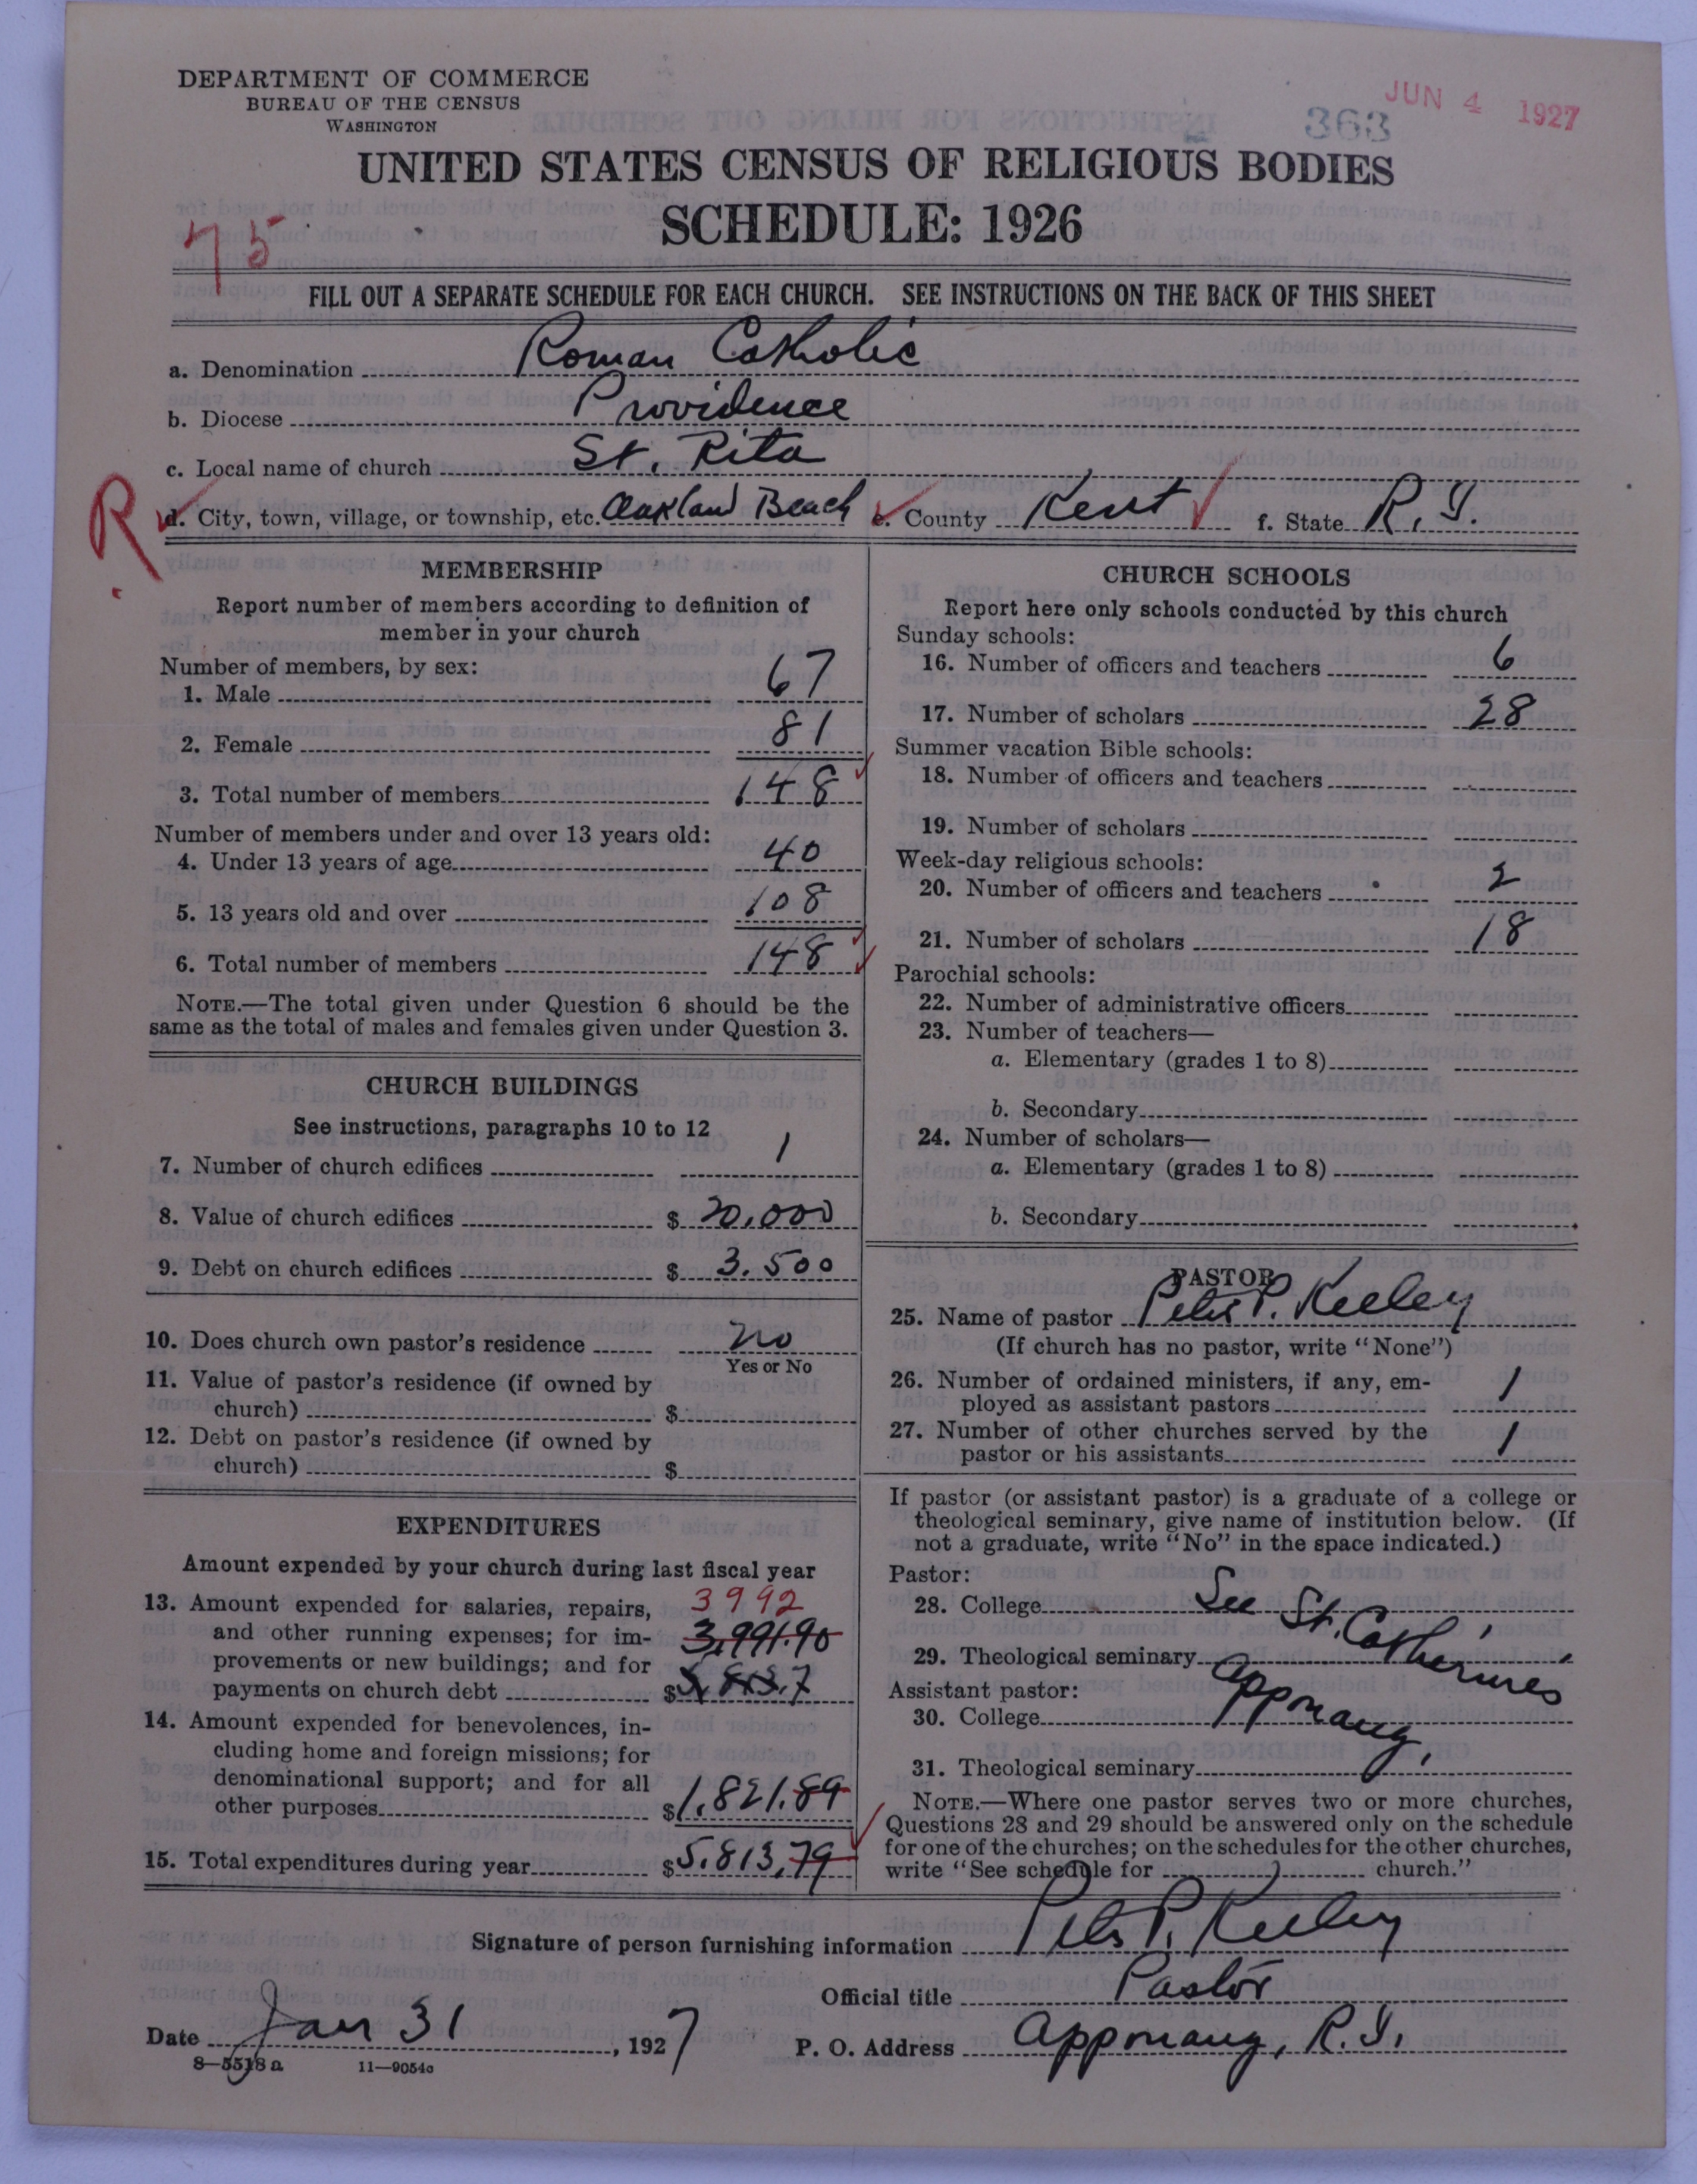 DEPARTMENT OF COMMERCE
BUREAU OF THE CENSUS
WASHINGTON
JUN 4 1927
363
UNITED STATES CENSUS OF RELIGIOUS BODIES
SCHEDULE: 1926
75
FILL OUT A SEPARATE SCHEDULE FOR EACH CHURCH. SEE INSTRUCTIONS ON THE BACK OF THIS SHEET
a. Denomination Roman Catholic
b. Diocese Providence
c. Local name of church St. Rita
R d. City, town, village, or township, etc. Oakland Beach e. County Kent f. State R. I.
MEMBERSHIP
Report number of members according to definition of
member in your church
Number of members, by sex:
1. Male 67
2. Female 81
3. Total number of members 148
Number of members under and over 13 years old:
4. Under 13 years of age 40
5. 13 years old and over 108
6. Total number of members 148
NOTE.—The total given under Question 6 should be the
same as the total of males and females given under Question 3.
CHURCH BUILDINGS
See instructions, paragraphs 10 to 12
7. Number of church edifices 1
8. Value of church edifices $ 20,000
9. Debt on church edifices $ 3.500
10. Does church own pastor's residence no
Yes or No
11. Value of pastor's residence (if owned by
church) $
12. Debt on pastor's residence (if owned by
church) $
EXPENDITURES
Amount expended by your church during last fiscal year
13. Amount expended for salaries, repairs, 3992
and other running expenses; for im- 3,991.90
provements or new buildings; and for
payments on church debt $
14. Amount expended for benevolences, in-
cluding home and foreign missions; for
denominational support; and for all
other purposes $1,821.89
15. Total expenditures during year $5.813,79
CHURCH SCHOOLS
Report here only schools conducted by this church
Sunday schools:
16. Number of officers and teachers 6
17. Number of scholars 28
Summer vacation Bible schools:
18. Number of officers and teachers
19. Number of scholars
Week-day religious schools:
20. Number of officers and teachers 2
21. Number of scholars 18
Parochial schools:
22. Number of administrative officers
23. Number of teachers—
a. Elementary (grades 1 to 8)
b. Secondary
24. Number of scholars—
a. Elementary (grades 1 to 8)
b. Secondary
PASTOR
25. Name of pastor Peter P. Keeley
(If church has no pastor, write "None")
26. Number of ordained ministers, if any, em-
ployed as assistant pastors 1
27. Number of other churches served by the
pastor or his assistants 1
If pastor (or assistant pastor) is a graduate of a college or
theological seminary, give name of institution below. (If
not a graduate, write "No" in the space indicated.)
Pastor:
28. College See St. Catherine's
29. Theological seminary Apponaug,
Assistant pastor:
30. College
31. Theological seminary
NOTE.—Where one pastor serves two or more churches,
Questions 28 and 29 should be answered only on the schedule
for one of the churches; on the schedules for the other churches,
write "See schedule for church."
Signature of person furnishing information Peter P. Keeley
Official title Pastor
Date Jan 31, 1927 P. O. Address Apponaug, R. I.
8—5518 a 11—9054a